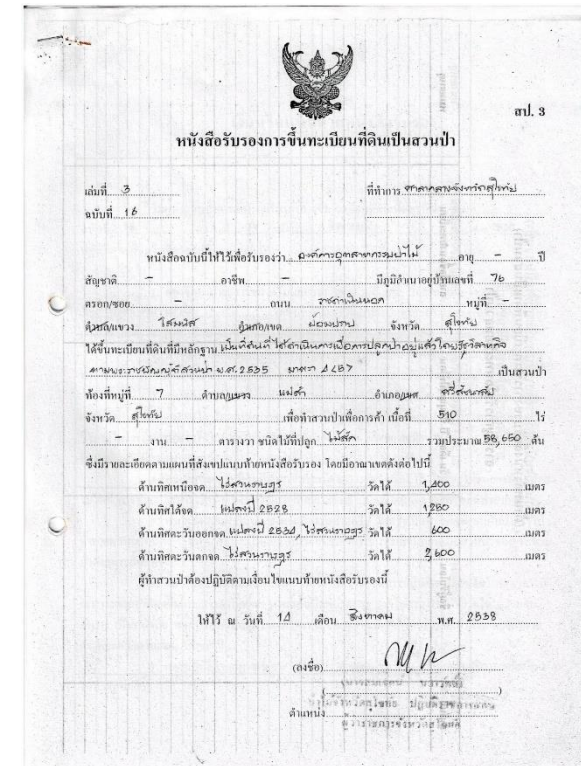 สป. 3
หนังสือรับรองการขึ้นทะเบียนที่ดินเป็นสวนป่า
เล่มที่ 3 ที่ทำการ ศาลากลางจังหวัดสุโขทัย
ฉบับที่ 16
หนังสือฉบับนี้ให้ไว้เพื่อรับรองว่า องค์การอุตสาหกรรมป่าไม้ อายุ - ปี
สัญชาติ - อาชีพ - มีภูมิลำเนาอยู่บ้านเลขที่ 76
ตรอก/ซอย - ถนน ราชดำเนินนอก หมู่ที่ -
ตำบล/แขวง โสมนัส อำเภอ/เขต ป้อมปราบ จังหวัด สุโขทัย
ได้ขึ้นทะเบียนที่ดินที่มีหลักฐาน เป็นที่ดินที่ได้ดำเนินการเพื่อการปลูกป่าอยู่แล้วโดยรัฐวิสาหกิจ
ตามพระราชบัญญัติสวนป่า พ.ศ.2535 มาตรา 4 เป็นสวนป่า
ท้องที่หมู่ที่ 7 ตำบล/แขวง แม่สำ อำเภอ/เขต ศรีสัชนาลัย
จังหวัด สุโขทัย เพื่อทำสวนป่าเพื่อการค้า เนื้อที่ 510 ไร่
- งาน - ตารางวา ชนิดไม้ที่ปลูก ไม้สัก รวมประมาณ 58,650 ต้น
ซึ่งมีรายละเอียดตามแผนที่สังเขปแนบท้ายหนังสือรับรอง โดยมีอาณาเขตดังต่อไปนี้
ด้านทิศเหนือจด ไร่สวนราษฎร วัดได้ 1,400 เมตร
ด้านทิศใต้จด แปลงปี 2528 วัดได้ 1,250 เมตร
ด้านทิศตะวันออกจด แปลงปี 2534, ไร่สวนราษฎร วัดได้ 600 เมตร
ด้านทิศตะวันตกจด ไร่สวนราษฎร วัดได้ 2,600 เมตร
ผู้ทำสวนป่าต้องปฏิบัติตามเงื่อนไขแนบท้ายหนังสือรับรองนี้
ให้ไว้ ณ วันที่ 14 เดือน สิงหาคม พ.ศ. 2538
(ลงชื่อ)
ป่าไม้จังหวัดสุโขทัย ปฏิบัติราชการแทน
ตำแหน่ง ผู้ว่าราชการจังหวัดสุโขทัย